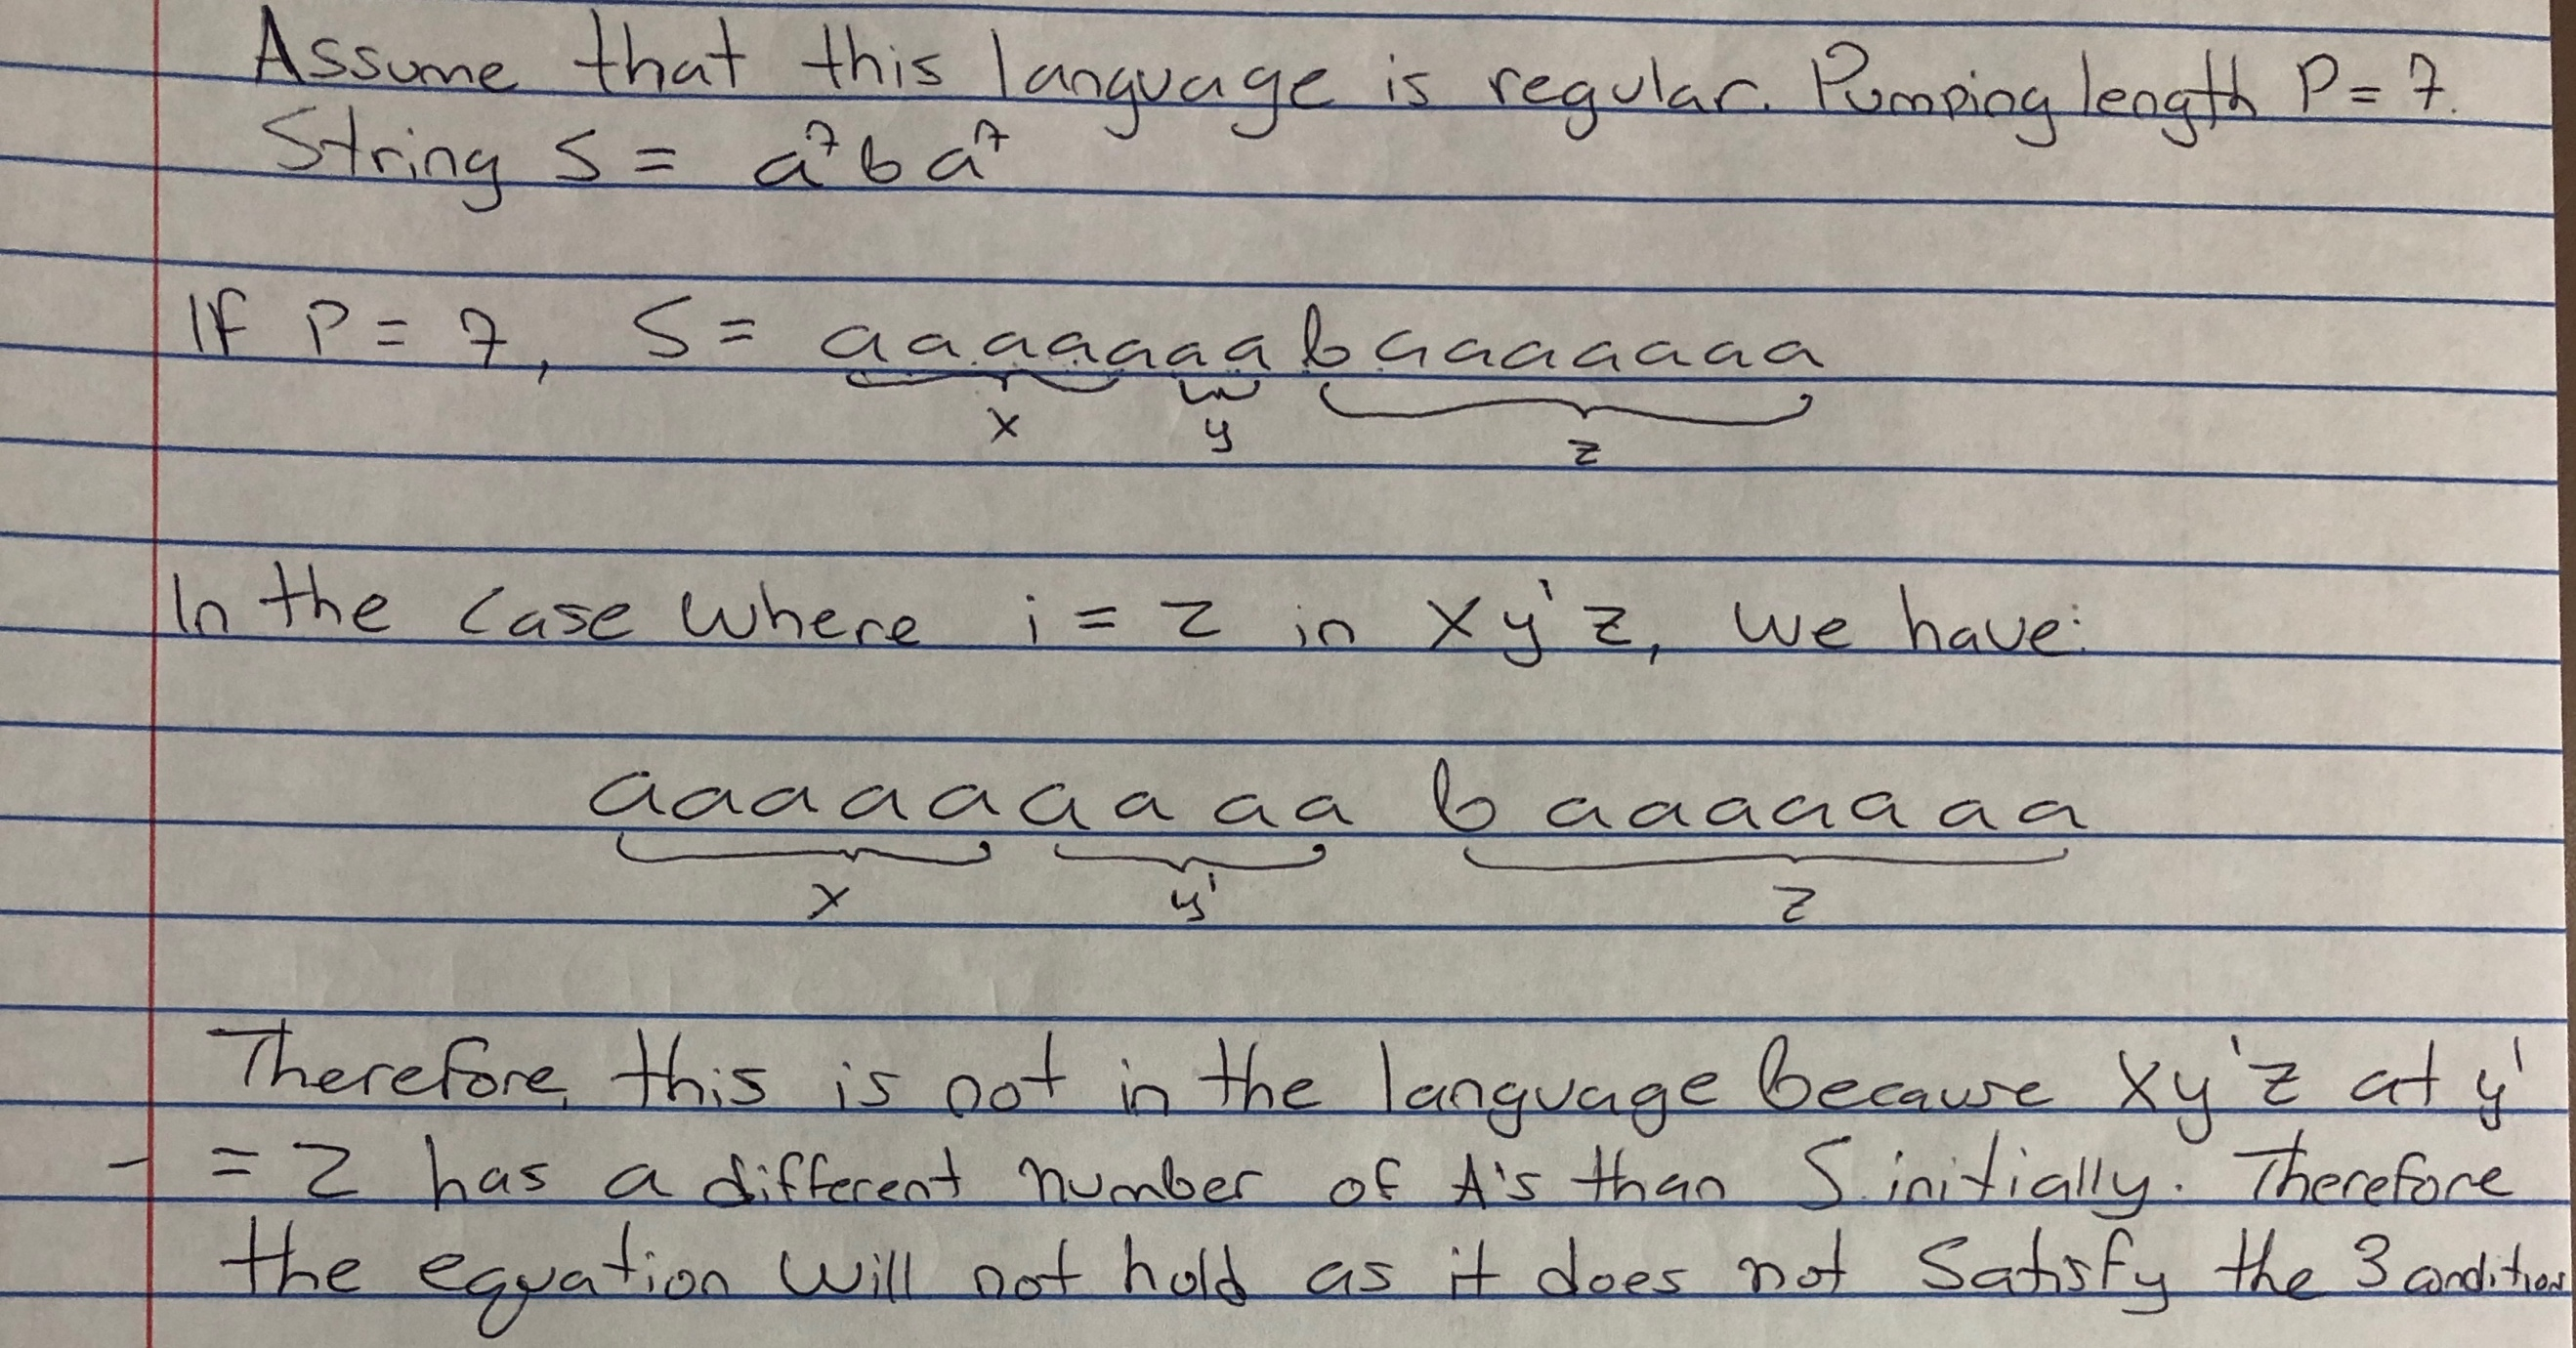 Assume that this language is regular. Pumping length P = 7.
String S = a⁷ba⁷
If P = 7, S = aaaaaaabaaaaaaa
x y z
In the case where i = 2 in xyⁱz, we have:
aaaaaaaaa baaaaaaa
x yⁱ z
Therefore, this is not in the language because xyⁱz at yⁱ
= 2 has a different number of A's than S initially. Therefore
the equation will not hold as it does not satisfy the 3 conditions